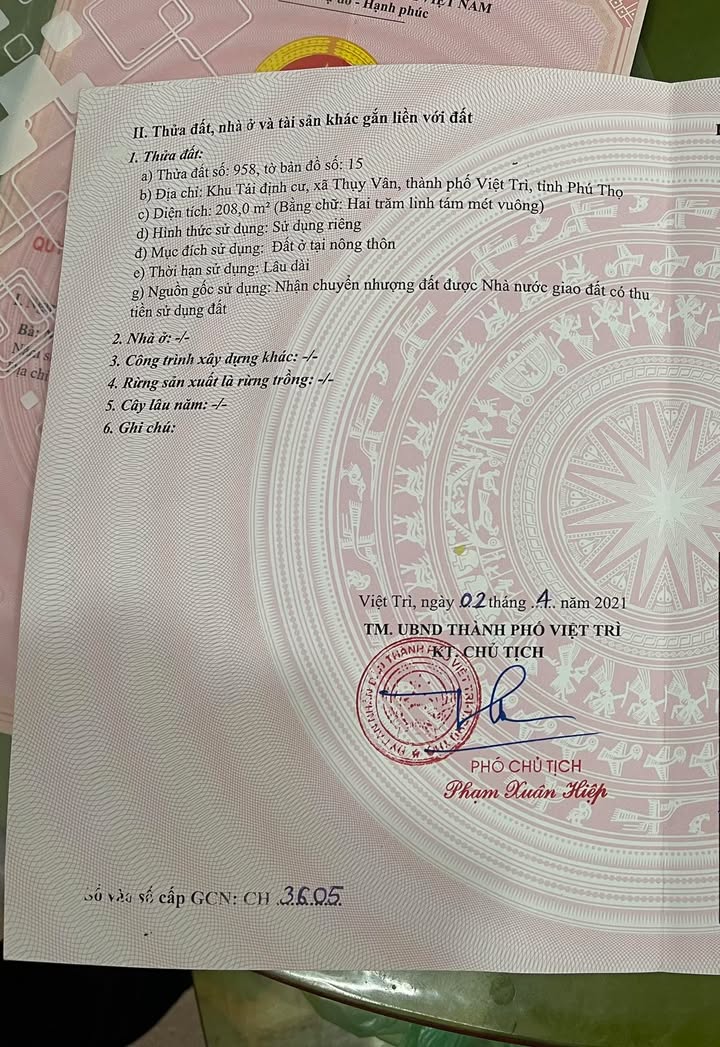 - Hạnh phúc
NAM
II. Thửa đất, nhà ở và tài sản khác gắn liền với đất
1. Thửa đất:
a) Thửa đất số: 958, tờ bản đồ số: 15
b) Địa chỉ: Khu Tái định cư, xã Thụy Vân, thành phố Việt Trì, tỉnh Phú Thọ
c) Diện tích: 208,0 m² (Bằng chữ: Hai trăm linh tám mét vuông)
d) Hình thức sử dụng: Sử dụng riêng
đ) Mục đích sử dụng: Đất ở tại nông thôn
e) Thời hạn sử dụng: Lâu dài
g) Nguồn gốc sử dụng: Nhận chuyển nhượng đất được Nhà nước giao đất có thu
tiền sử dụng đất
2. Nhà ở: -/-
3. Công trình xây dựng khác: -/-
4. Rừng sản xuất là rừng trồng: -/-
5. Cây lâu năm: -/-
6. Ghi chú:
Việt Trì, ngày 02 tháng 4 năm 2021
TM. UBND THÀNH PHỐ VIỆT TRÌ
KT. CHỦ TỊCH
PHÓ CHỦ TỊCH
Phạm Xuân Hiệp
Số vào sổ cấp GCN: CH 3605